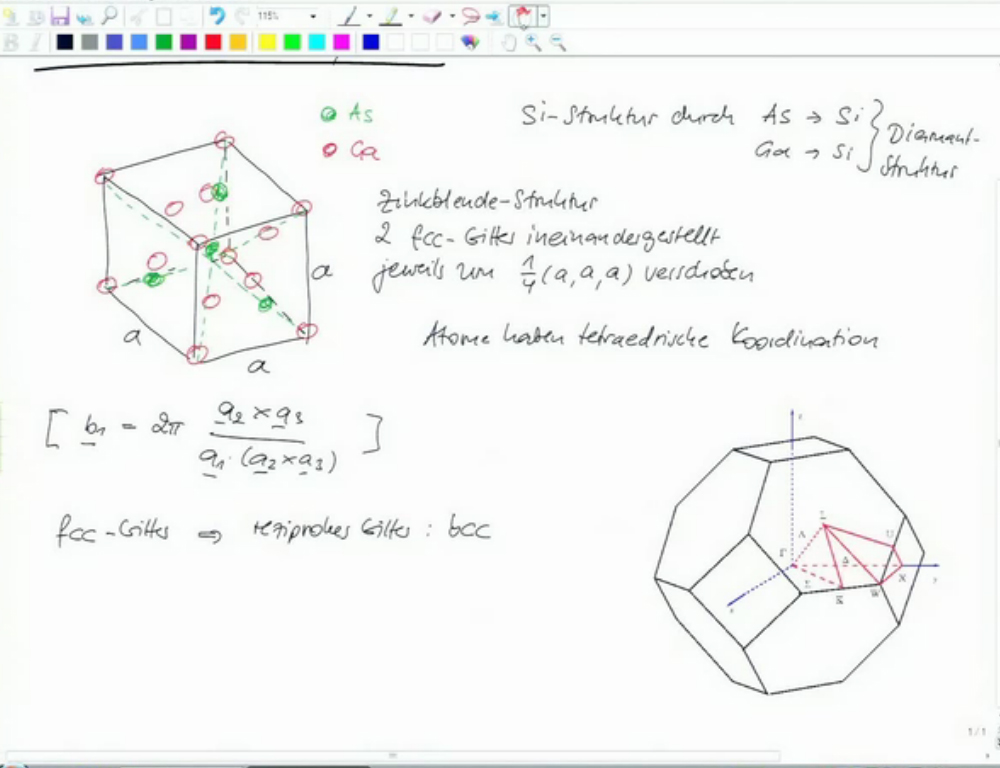 115%
As
Ga
Si-Struktur durch As → Si
Ga → Si
} Diamant-
Struktur
Zinkblende-Struktur
2 fcc-Gitter ineinandergestellt
jeweils um 1/4 (a, a, a) verschoben
Atome haben tetraedrische Koordination
a
a
a
[ b1 = 2π (a2 × a3) / (a1 · (a2 × a3)) ]
fcc-Gitter ⇒ reziprokes Gitter : bcc
z
L
Λ
U
Γ
Δ
X
y
Σ
K
W
x
1/1